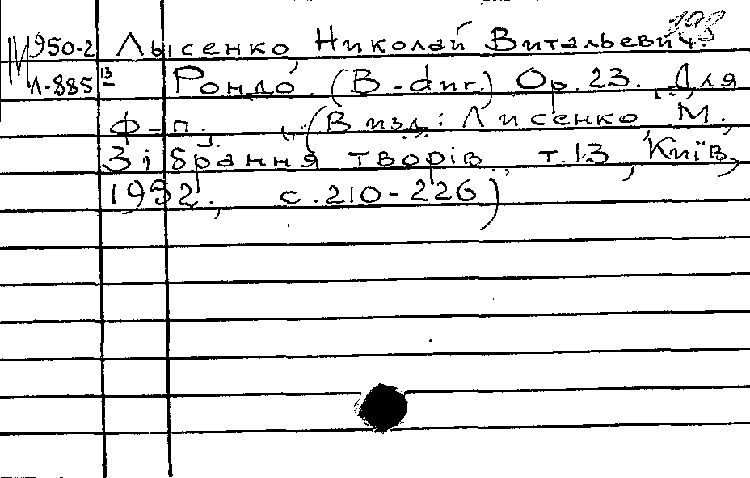 М950-2 Лысенко, Николай Витальевич.
Л-885 13 Рондо. (B-dur.) Op. 23. Для
ф-п. (В изд: Лисенко, М.
Зібрання творів, т. 13, Київ,
1952, с. 210-226)